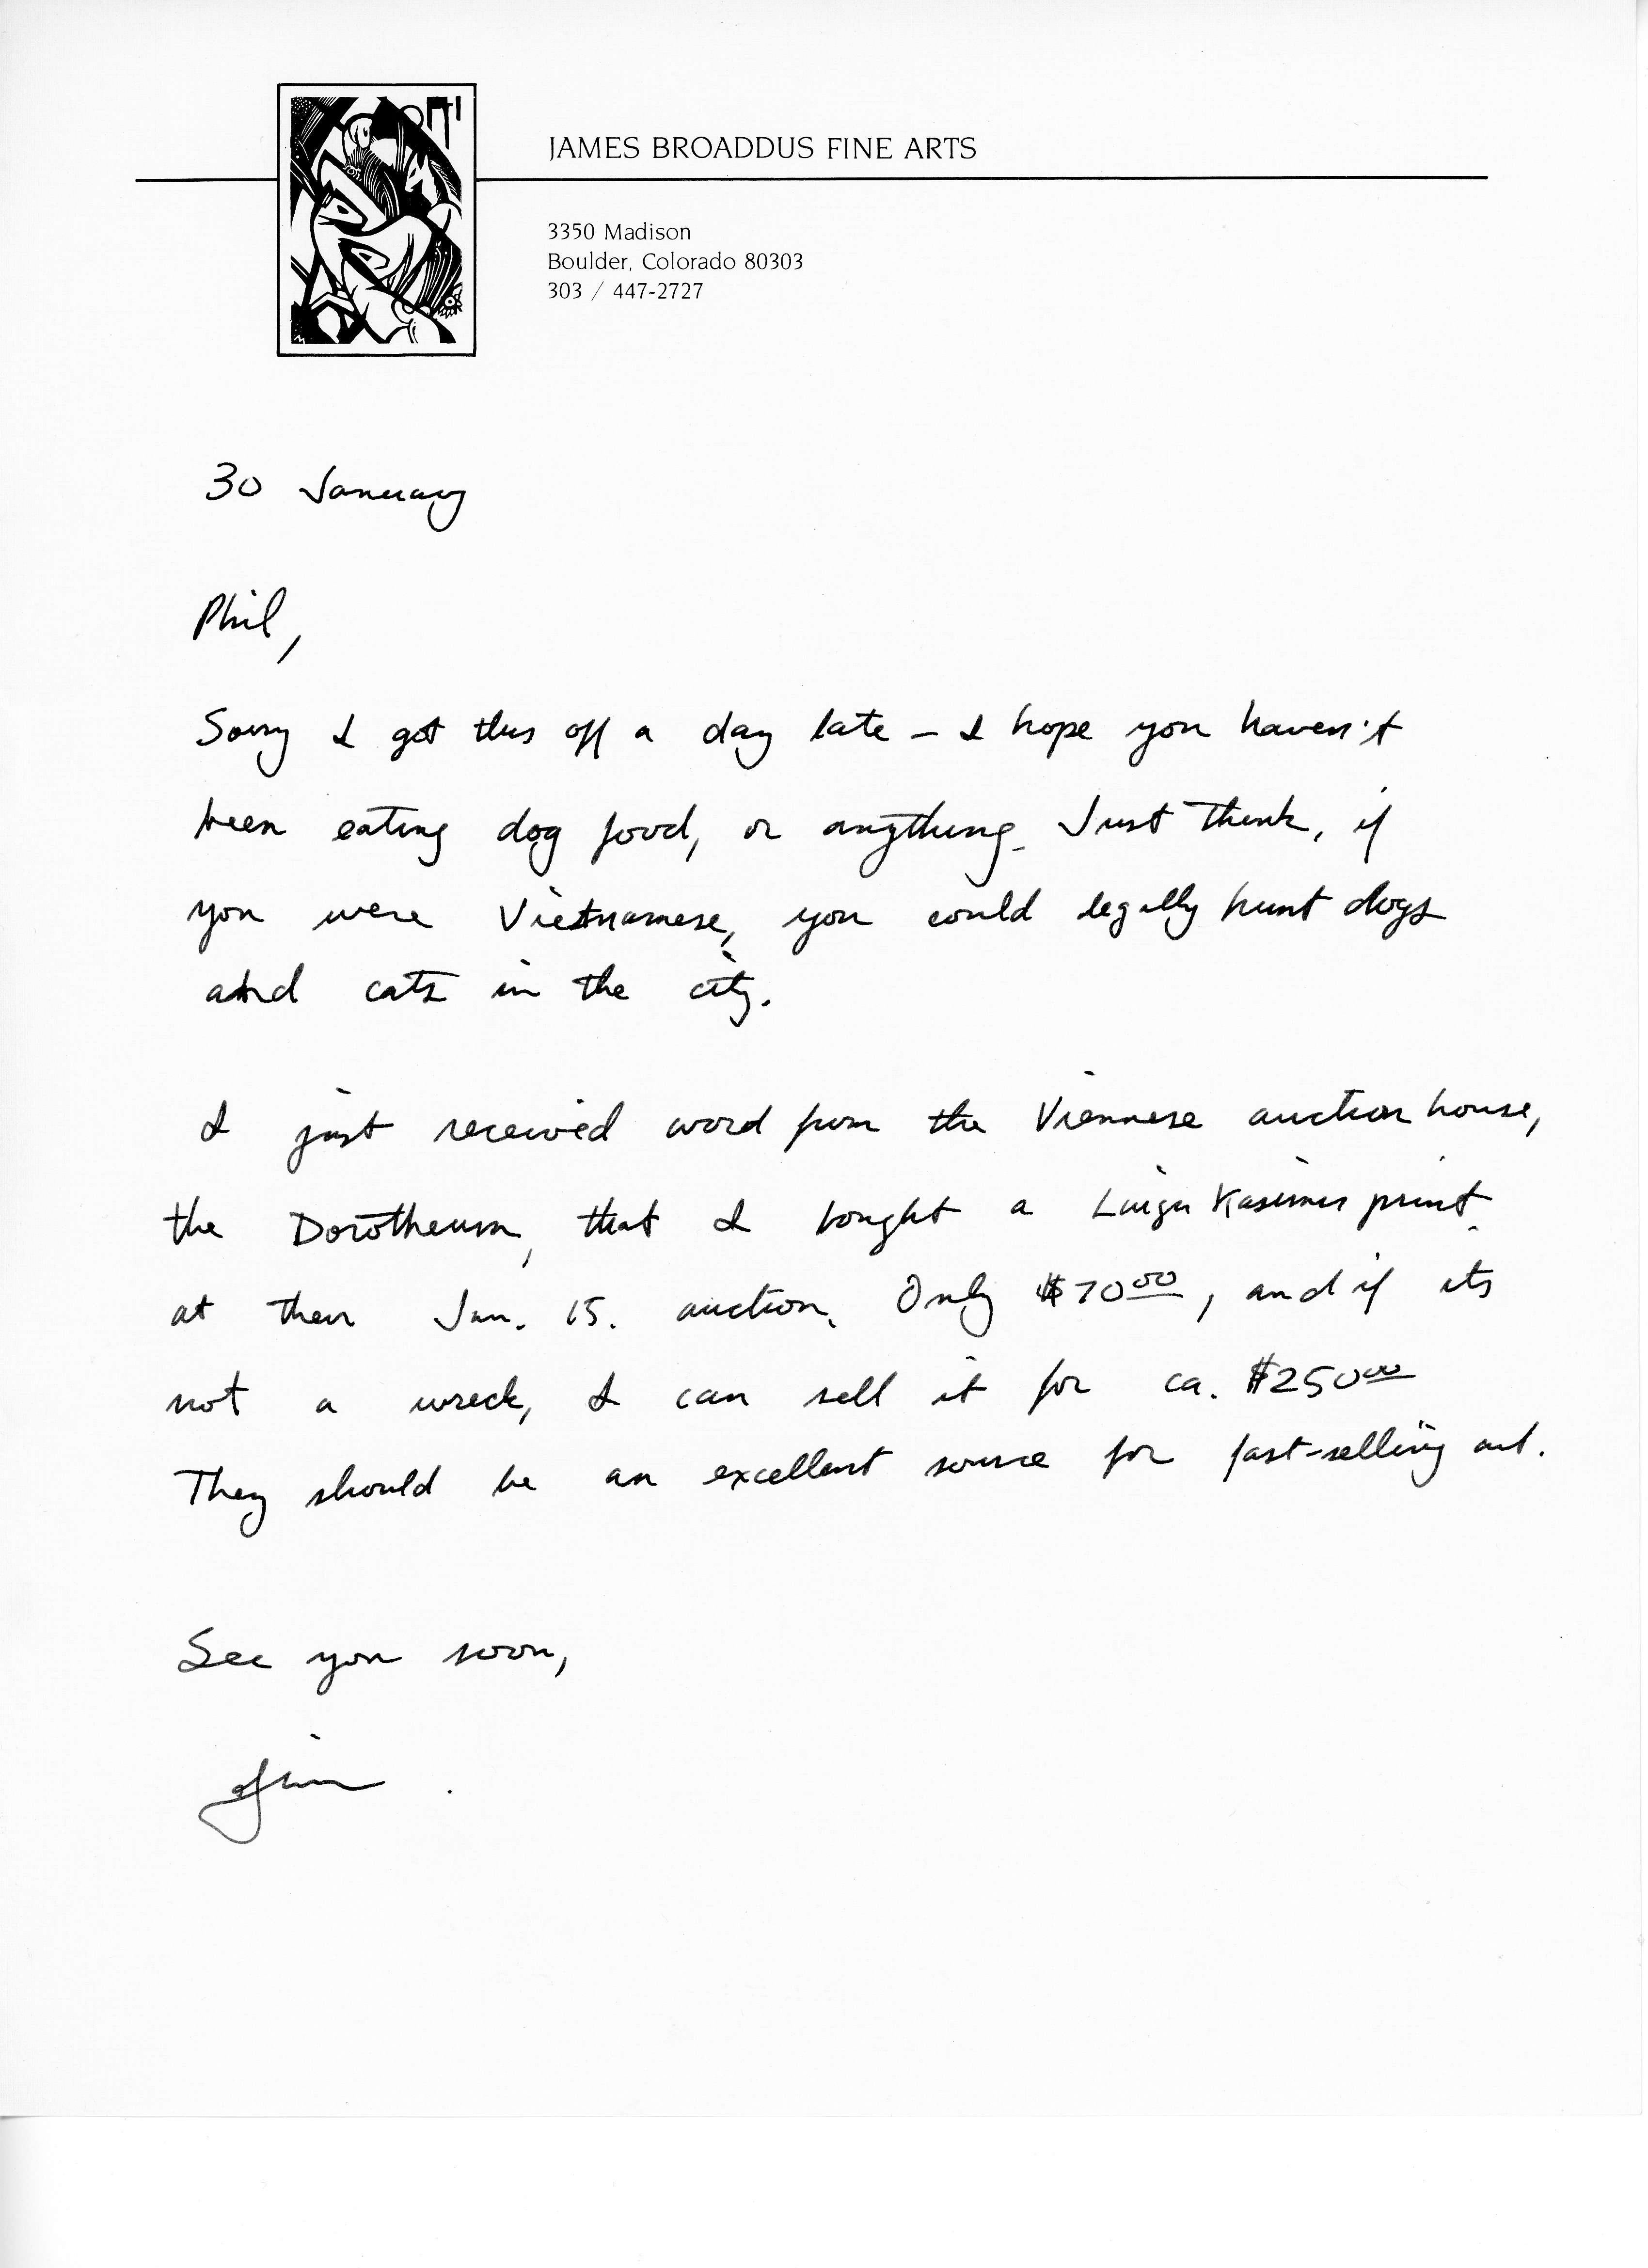 JAMES BROADDUS FINE ARTS
3350 Madison
Boulder, Colorado 80303
303 / 447-2727
30 January
Phil,
Sorry I got this off a day late – I hope you haven't
been eating dog food, or anything. Just think, if
you were Vietnamese, you could legally hunt dogs
and cats in the city.
I just received word from the Viennese auction house,
the Dorotheum, that I bought a Luigi Kasimir print
at their Jan. 15. auction. Only $70.00, and if its
not a wreck, I can sell it for ca. $250.00
They should be an excellent source for fast-selling art.
See you soon,
Jim